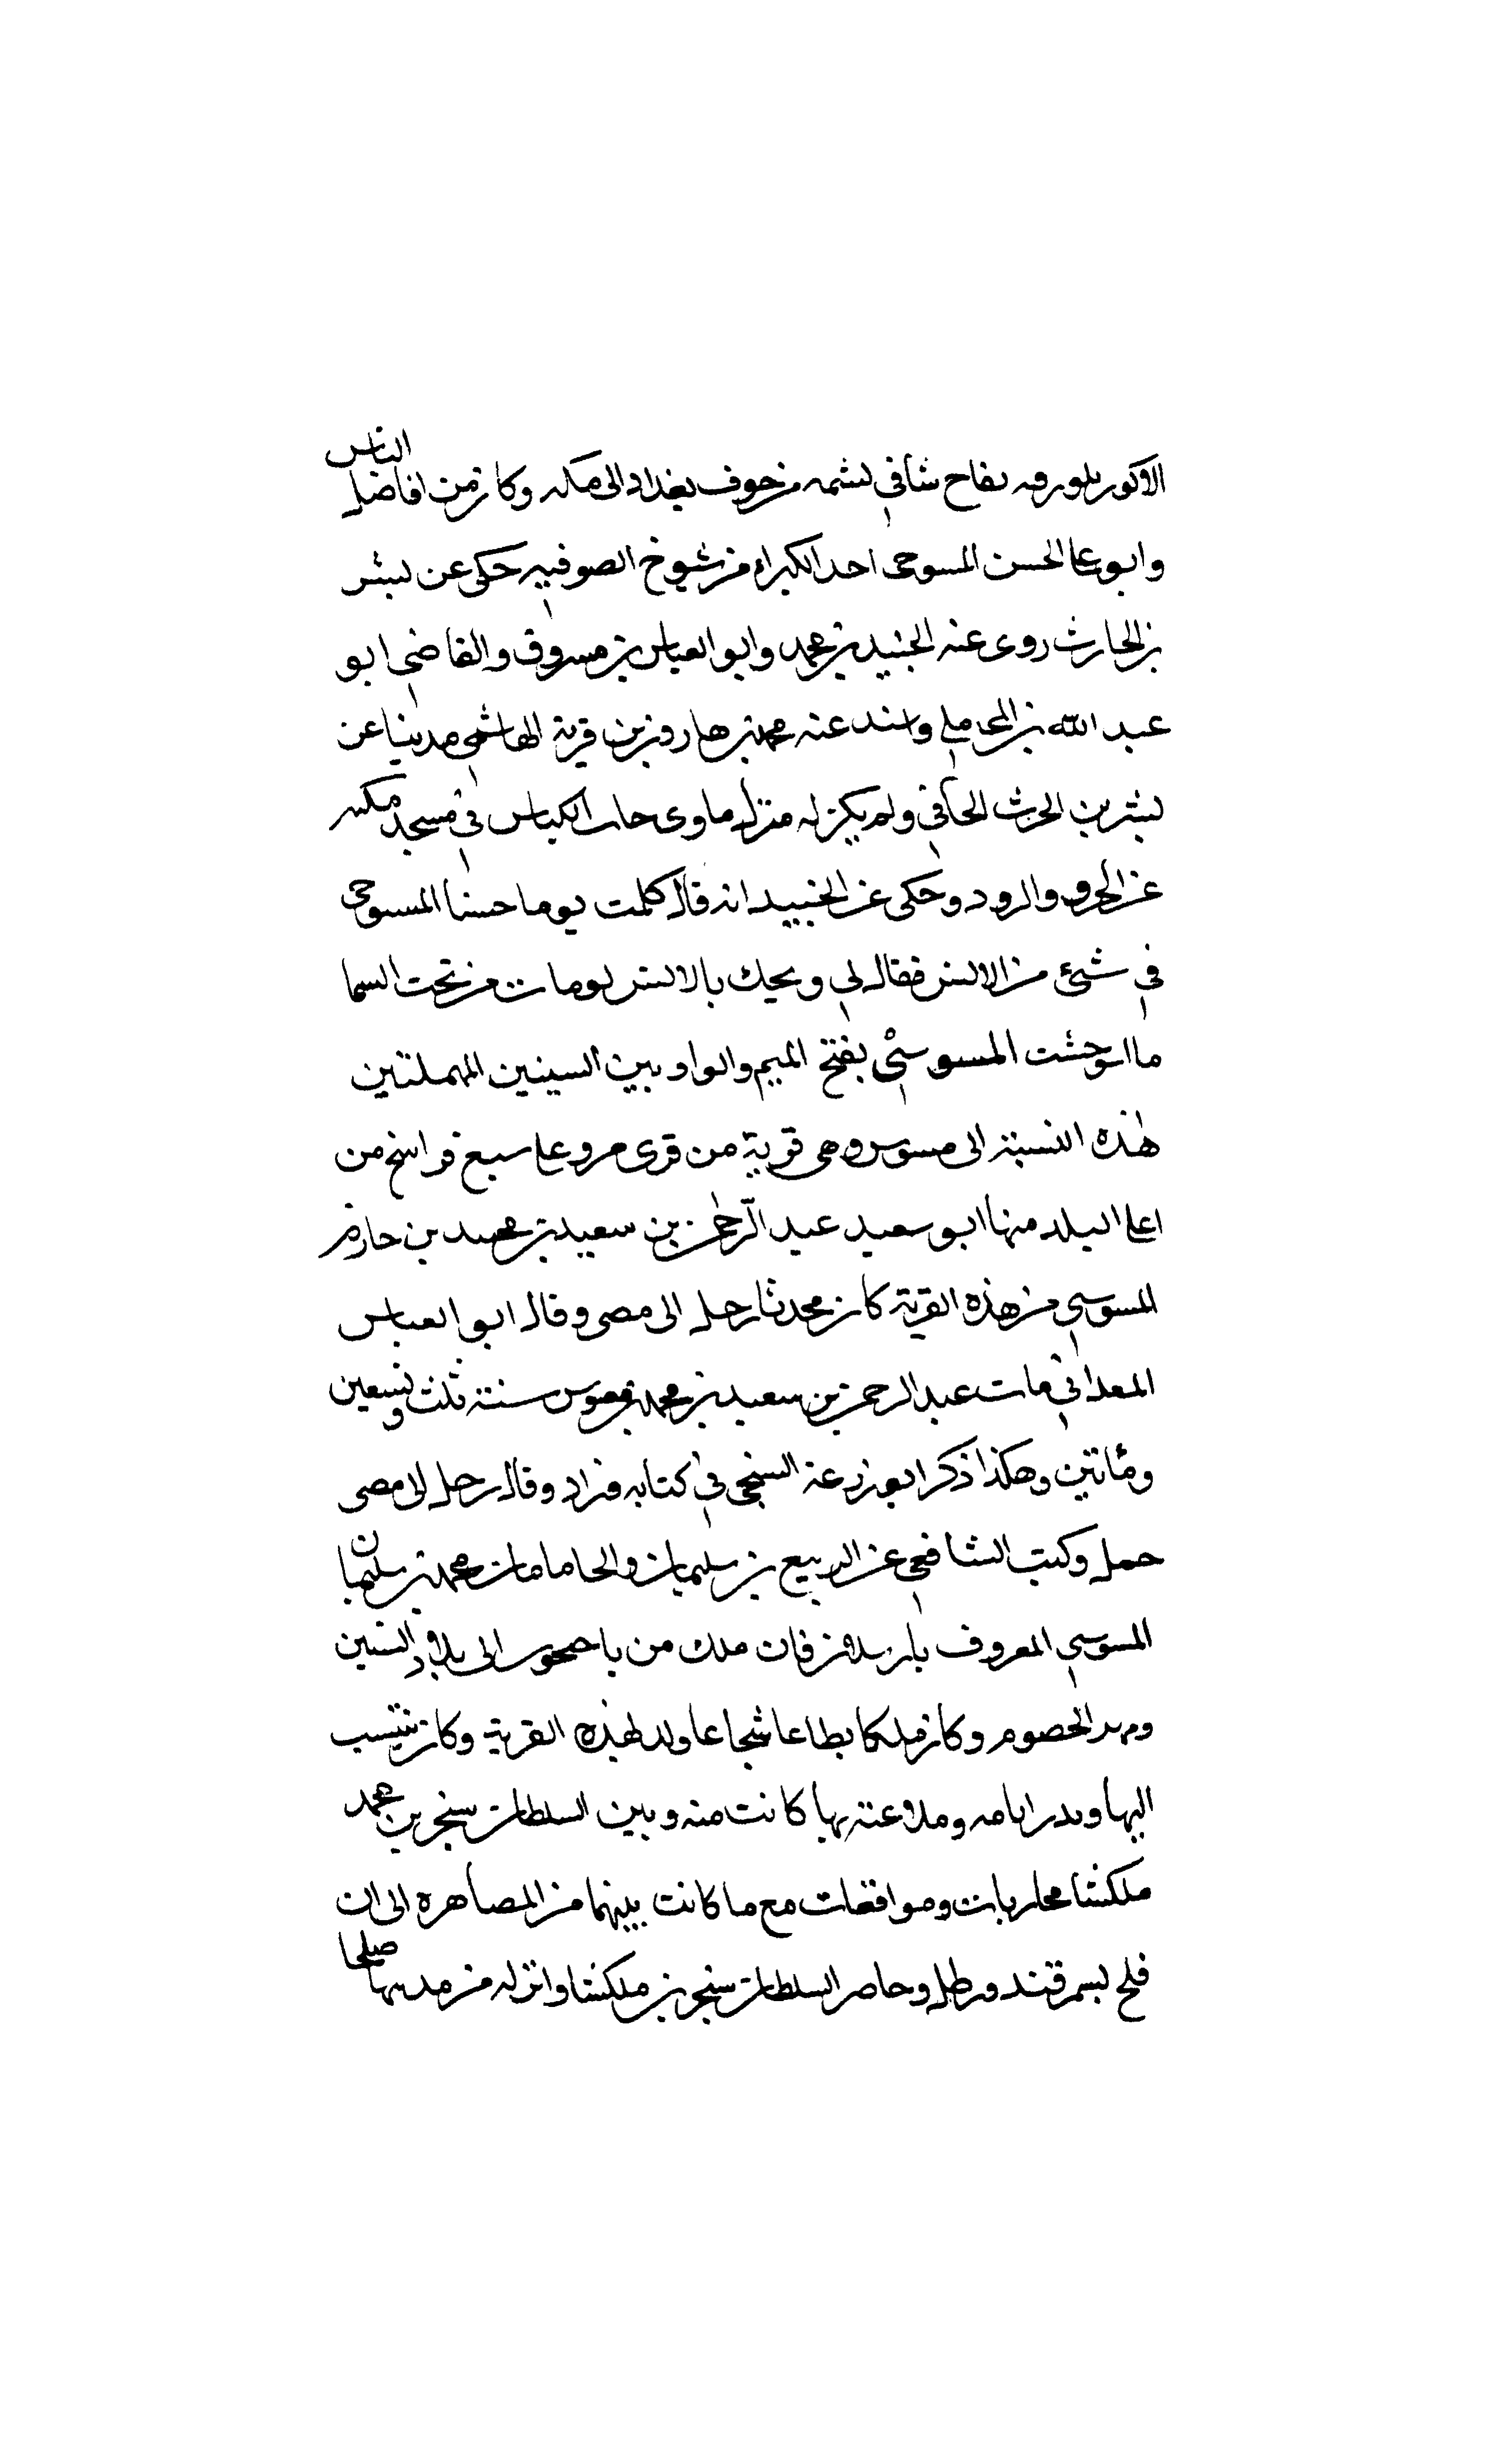 الاكور بلورفه تفاح شافي لشمه من خوف بغداد الى مكه وكان من افاضل الناس
وابو علي الحسن المسوحى احد الكبراء من شيوخ الصوفيه حكى عن بشر
بن الحارث روى عنه الجنيد بن محمد وابو العباس بن مسروق والقاضي ابو
عبد الله بن المحاملي واسند عنه محمد بن هارون بن قرية الهاشمي حديثا عن
بشر بن الحرث الحافي ولم يكن له منزل ماوى حاب الكباس في مسجد مكنه
عن الحر والبرد وحكى عن الجنيد انه قال كلمت يوما حسنا المسوحى
في شئ من الانس فقال لي ويحك بالانس لو مات من تحت السما
ما استوحشت المسوسي بفتح الميم والواو بين السينين المهملتين
هذه النسبة الى مسوس وهى قرية من قرى مرو على سبع فراسخ من
اعلى البلد منها ابو سعيد عبد الرحمن بن سعيد بن محمد بن حازم
المسوسي من هذه القرية كان محدثا رحل الى مصر وقال ابو العباس
المعداني مات عبد الرحمن بن سعيد بن محمد بمسوس سنة ثلث وتسعين
ومائتين وهكذا ذكر ابو زرعة السنجي في كتابه فزاد وقال رحل الى مصر
حمل وكتب الشافعي عن الربيع بن سليمان والحاما مان محمد بن سليمان
المسوسي المعروف ملك من الى بلاد السنين
الخصوم وكان ملكا بطاعا شجاعا ولد لهذه القرية وكان ينتسب
اليها ايامه وملاعبته بها كانت منه وبين السلطان سنجر بن محمد
ملكشا محاربات وموافقات مع ما كانت بينهما من المصاهره الى ان
فلح بسمرقند وبطل وحاصر السلطان سنجر بن ملكشا وانزله من مدينتها صلحا